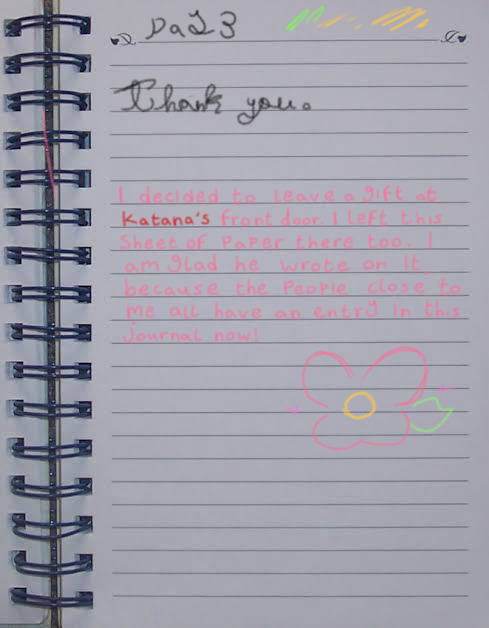 Day 3
Thank you.
I decided to leave a gift at
Katana's front door. I left this
Sheet of Paper there too. I
am glad he wrote on it
because the People close to
me all have an entry in this
journal now!